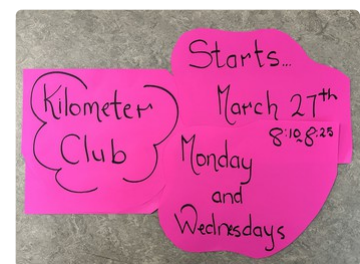 Kilometer
Club
Starts...
March 27th
8:10-8:25
Monday
and
Wednesdays